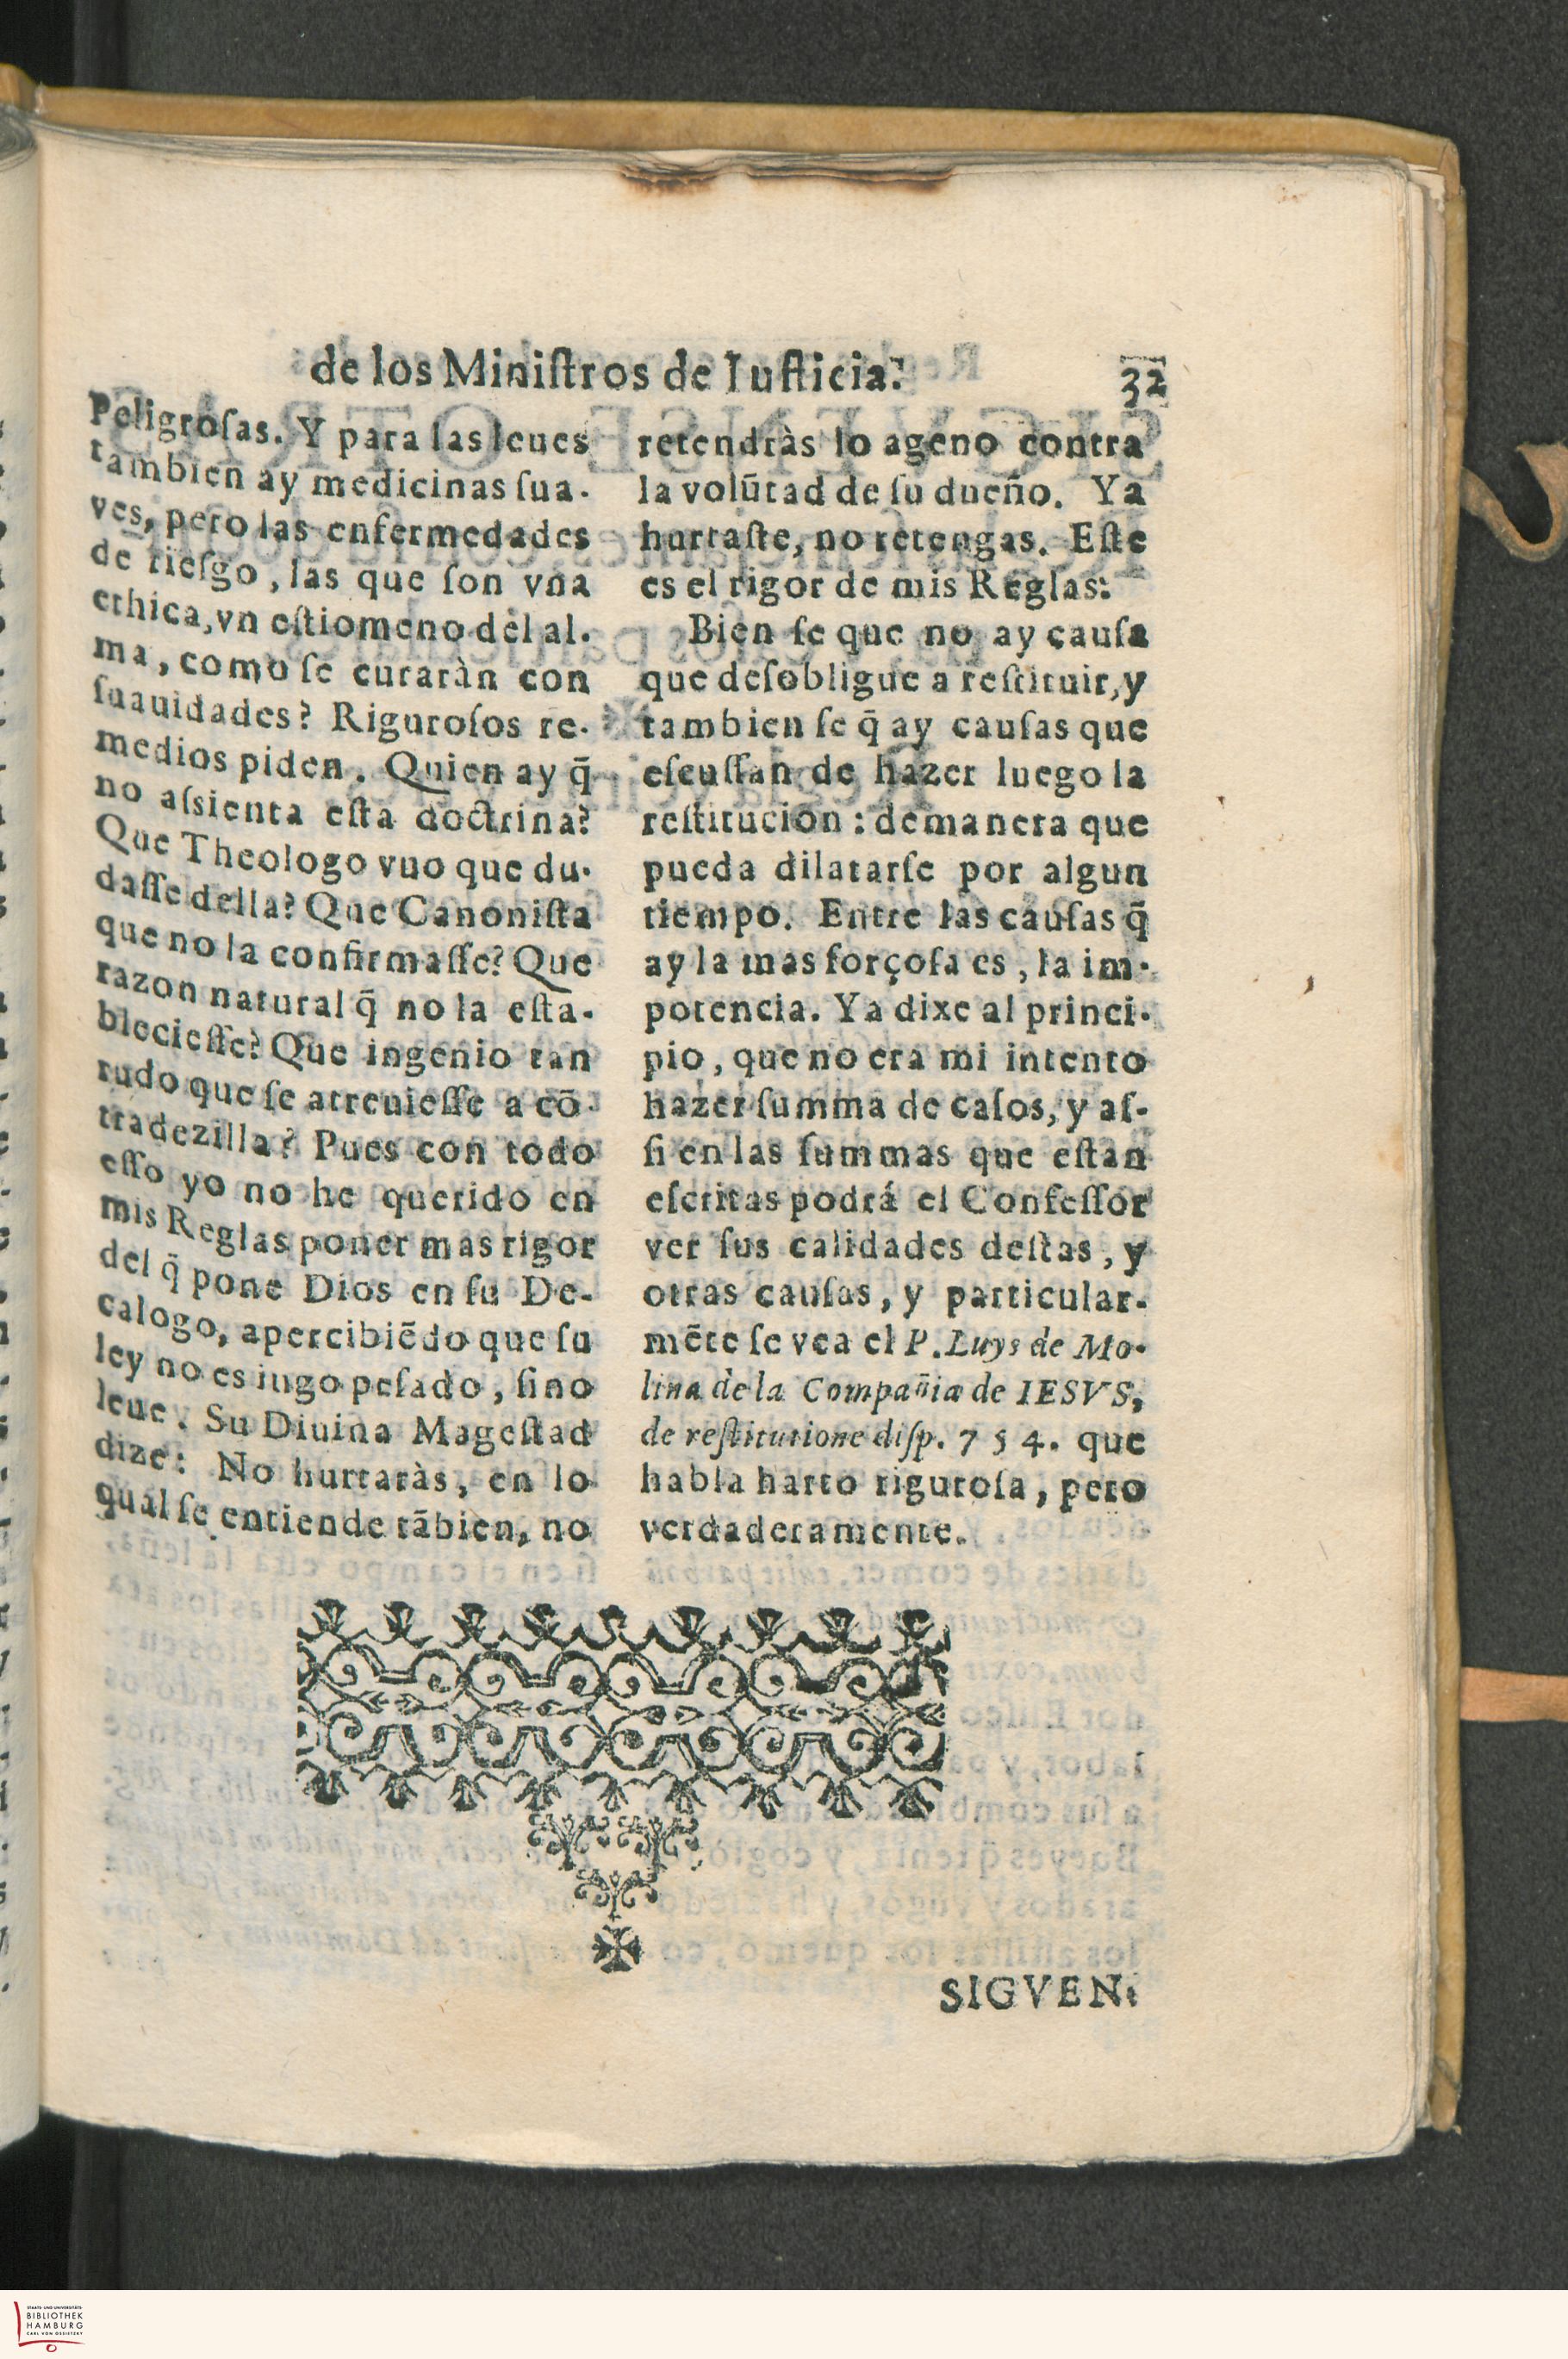 de los Miniſtros de Iuſticia. 32
Peligroſas. Y para las leues
tambien ay medicinas ſua-
ves, pero las enfermedades
de rieſgo, las que ſon vna
ethica, vn eſtiomeno del al-
ma, como ſe curaràn con
ſuauidades? Riguroſos re-
medios piden. Quien ay q̃
no aſsienta eſta doctrina?
Que Theologo vuo que du-
daſſe della? Que Canoniſta
que no la confirmaſſe? Que
razon natural q̃ no la eſta-
blecieſſe? Que ingenio tan
rudo que ſe atreuieſſe a cõ-
tradezilla? Pues con todo
eſſo yo no he querido en
mis Reglas poner mas rigor
del q̃ pone Dios en ſu De-
calogo, apercibiẽdo que ſu
ley no es iugo peſado, ſino
leue. Su Diuina Mageſtad
dize: No hurtaràs, en lo
qual ſe entiende tãbien, no
retendràs lo ageno contra
la volũtad de ſu dueño. Ya
hurtaſte, no retengas. Eſte
es el rigor de mis Reglas:
Bien ſe que no ay cauſa
que deſobligue a reſtituir, y
tambien ſe q̃ ay cauſas que
eſcuſſan de hazer luego la
reſtitucion: demanera que
pueda dilatarſe por algun
tiempo. Entre las cauſas q̃
ay la mas forçoſa es, la im-
potencia. Ya dixe al princi-
pio, que no era mi intento
hazer ſumma de caſos, y aſ-
ſi en las ſummas que eſtan
eſcritas podrá el Confeſſor
ver ſus calidades deſtas, y
otras cauſas, y particular-
mẽte ſe vea el P. Luys de Mo-
lina de la Compañia de IESVS,
de reſtitutione diſp. 754. que
habla harto riguroſa, pero
verdaderamente.
SIGVEN:
STAATS- UND UNIVERSITÄTS
BIBLIOTHEK
HAMBURG
CARL VON OSSIETZKY